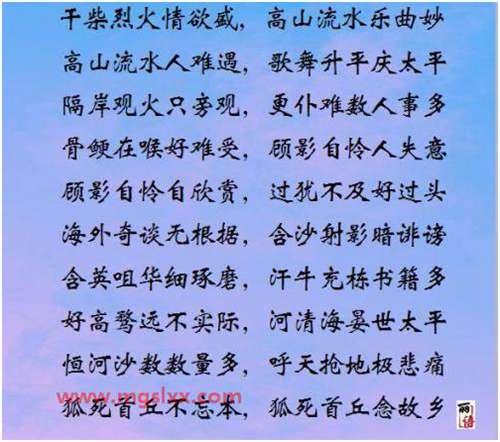 干柴烈火情欲盛，高山流水乐曲妙
高山流水人难遇，歌舞升平庆太平
隔岸观火只旁观，更仆难数人事多
骨鲠在喉好难受，顾影自怜人失意
顾影自怜自欣赏，过犹不及好过头
海外奇谈无根据，含沙射影暗诽谤
含英咀华细琢磨，汗牛充栋书籍多
好高骛远不实际，河清海晏世太平
恒河沙数数量多，呼天抢地极悲痛
www.mgslxx.com
狐死首丘不忘本，狐死首丘念故乡
丽语